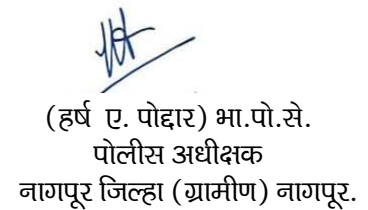 (हर्ष ए. पोद्दार) भा.पो.से.
पोलीस अधीक्षक
नागपूर जिल्हा (ग्रामीण) नागपूर.